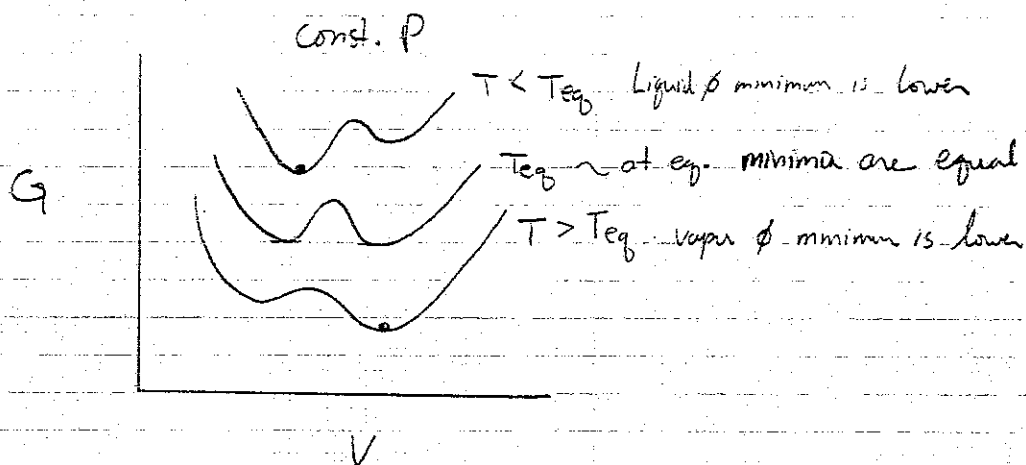 Const. P
T < Teq Liquid ϕ minimum is lower
Teq ~ at eq. minima are equal
G
T > Teq vapor ϕ minimum is lower
V